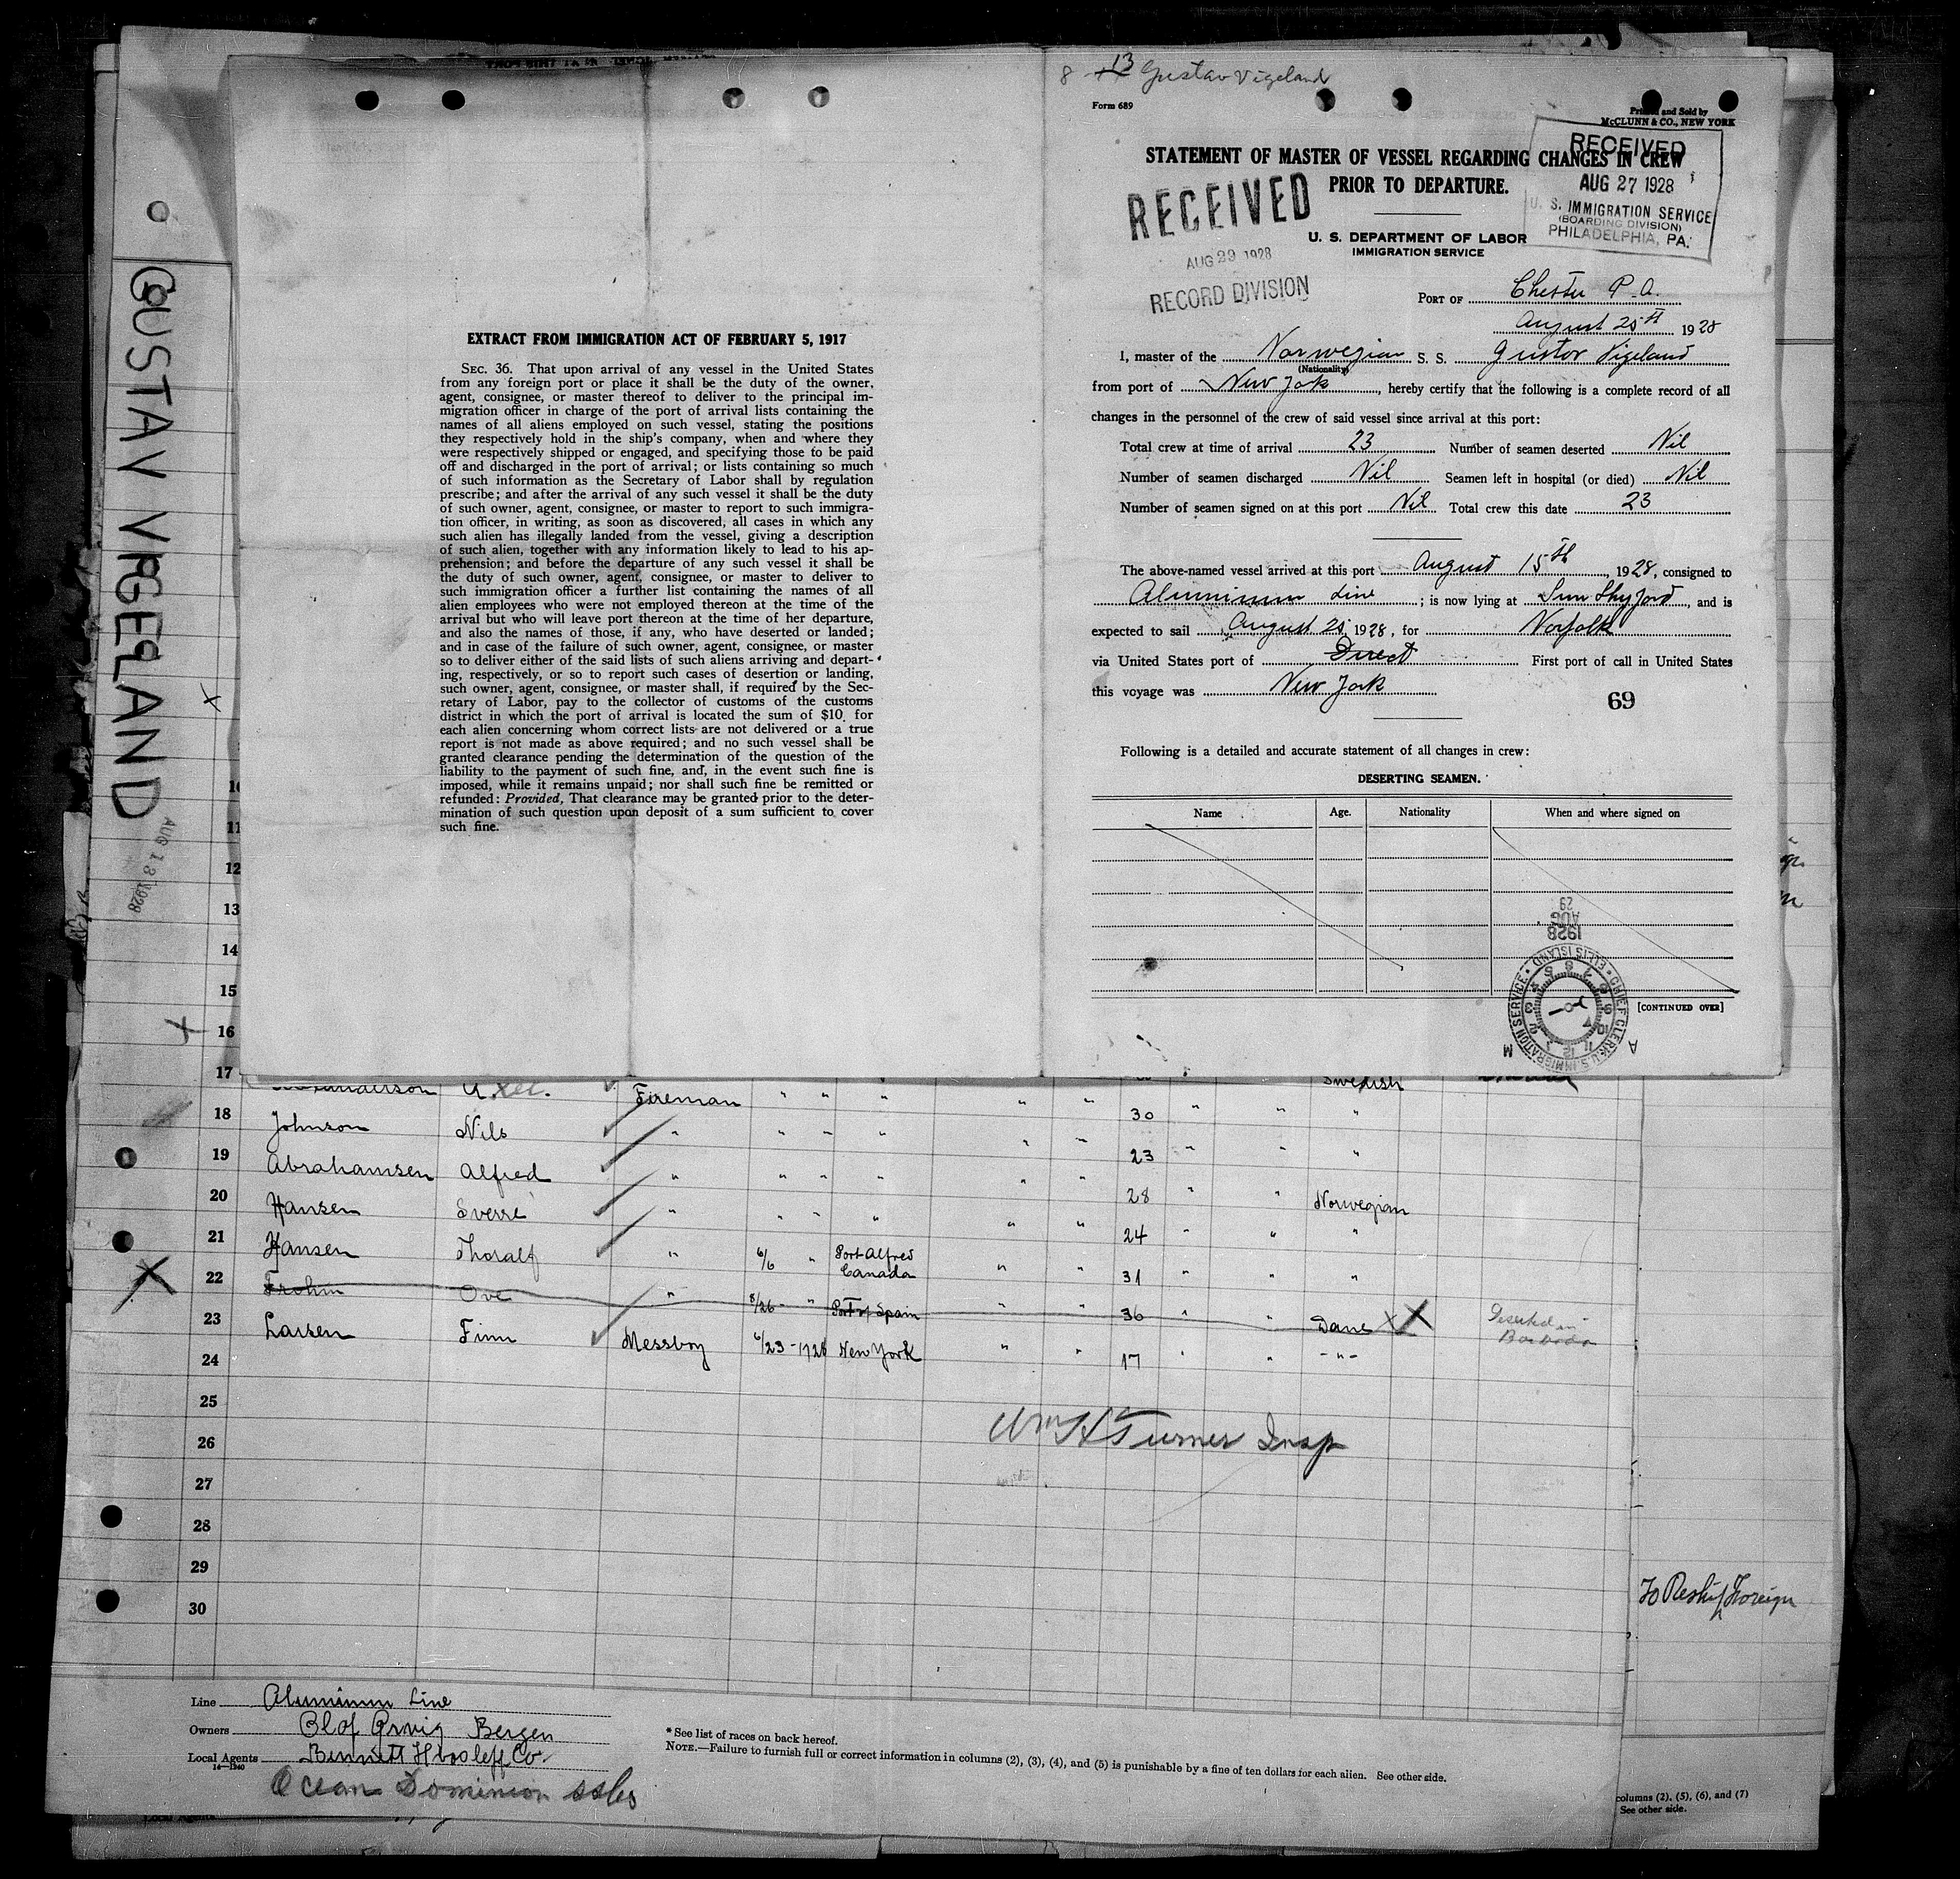 GUSTAV VIGELAND
AUG 13 1928
EXTRACT FROM IMMIGRATION ACT OF FEBRUARY 5, 1917
SEC. 36. That upon arrival of any vessel in the United States
from any foreign port or place it shall be the duty of the owner,
agent, consignee, or master thereof to deliver to the principal im-
migration officer in charge of the port of arrival lists containing the
names of all aliens employed on such vessel, stating the positions
they respectively hold in the ship's company, when and where they
were respectively shipped or engaged, and specifying those to be paid
off and discharged in the port of arrival; or lists containing so much
of such information as the Secretary of Labor shall by regulation
prescribe; and after the arrival of any such vessel it shall be the duty
of such owner, agent, consignee, or master to report to such immigra-
tion officer, in writing, as soon as discovered, all cases in which any
such alien has illegally landed from the vessel, giving a description
of such alien, together with any information likely to lead to his ap-
prehension; and before the departure of any such vessel it shall be
the duty of such owner, agent, consignee, or master to deliver to
such immigration officer a further list containing the names of all
alien employees who were not employed thereon at the time of the
arrival but who will leave port thereon at the time of her departure,
and also the names of those, if any, who have deserted or landed;
and in case of the failure of such owner, agent, consignee, or master
so to deliver either of the said lists of such aliens arriving and depart-
ing, respectively, or so to report such cases of desertion or landing,
such owner, agent, consignee, or master shall, if required by the Sec-
retary of Labor, pay to the collector of customs of the customs
district in which the port of arrival is located the sum of $10 for
each alien concerning whom correct lists are not delivered or a true
report is not made as above required; and no such vessel shall be
granted clearance pending the determination of the question of the
liability to the payment of such fine, and, in the event such fine is
imposed, while it remains unpaid; nor shall such fine be remitted or
refunded: Provided, That clearance may be granted prior to the deter-
mination of such question upon deposit of a sum sufficient to cover
such fine.
8 13 Gustav Vigeland
Form 689
Printed and Sold by
McCLUNN & CO., NEW YORK
STATEMENT OF MASTER OF VESSEL REGARDING CHANGES IN CREW
PRIOR TO DEPARTURE.
RECEIVED
AUG 27 1928
U. S. IMMIGRATION SERVICE
(BOARDING DIVISION)
PHILADELPHIA, PA.
RECEIVED
AUG 29 1928
RECORD DIVISION
U. S. DEPARTMENT OF LABOR
IMMIGRATION SERVICE
PORT OF Chester P.A.
August 25th 1928
I, master of the Norwegian S. S. Gustav Vigeland
(Nationality)
from port of New York, hereby certify that the following is a complete record of all
changes in the personnel of the crew of said vessel since arrival at this port:
Total crew at time of arrival 23 Number of seamen deserted Nil
Number of seamen discharged Nil Seamen left in hospital (or died) Nil
Number of seamen signed on at this port Nil Total crew this date 23
The above-named vessel arrived at this port August 15th, 1928, consigned to
Aluminum Line; is now lying at Sun, and is
expected to sail August 25, 1928, for Norfolk
via United States port of Direct First port of call in United States
this voyage was New York
69
Following is a detailed and accurate statement of all changes in crew:
DESERTING SEAMEN.
Name Age. Nationality When and where signed on
1928
AUG
29
CHIEF CLERK U.S. IMMIGRATION SERVICE • ELLIS ISLAND •
[CONTINUED OVER]
10
11
12
13
14
15
16
17 Axel Fireman " " " " " 30 " " Swedish
18 Johnson Nils " " " " " " 23 " " "
19 Abrahamsen Alfred " " " " " " 28 " " Norwegian
20 Hansen Sverre " " " " " " 24 " " "
21 Hansen Thoralf " 6/6 " Port Alfred Canada " " 31 " " "
22 Frohm Ove " 8/26 " Port of Spain " " 36 " " Dane XX Deserted in
23 Larsen Finn Messboy 6/23-1928 New York " " 17 " " -"-
24
25
26
27
28
29
30
Wm H Turner Insp
To Reship Foreign
Line Aluminum Line
Owners Olof Bergen
Local Agents Bennett Hvosleff Co.
14—1240
Ocean Dominion SSCo
*See list of races on back hereof.
NOTE.—Failure to furnish full or correct information in columns (2), (3), (4), and (5) is punishable by a fine of ten dollars for each alien. See other side.
columns (2), (5), (6), and (7)
See other side.